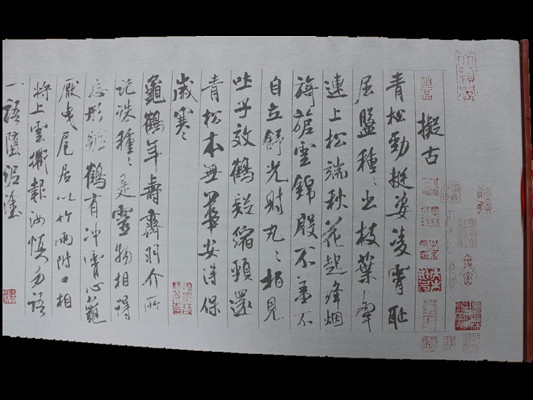 擬古
青松勁挺姿凌霄耻
屈盤種〻出枝葉牽
連上松端秋花起絳烟
旖旎雲錦殷不羞不
自立舒光射丸〻柏見
吐子效鶴疑縮頸還
青松本無華安得保
歲寒〻
龜鶴年壽齊羽介所
託殊種〻是靈物相得
忘形軀鶴有沖霄心龜
厭曳尾居以竹兩附口相
將上雲衢報汝慎勿語
一語墮泥塗